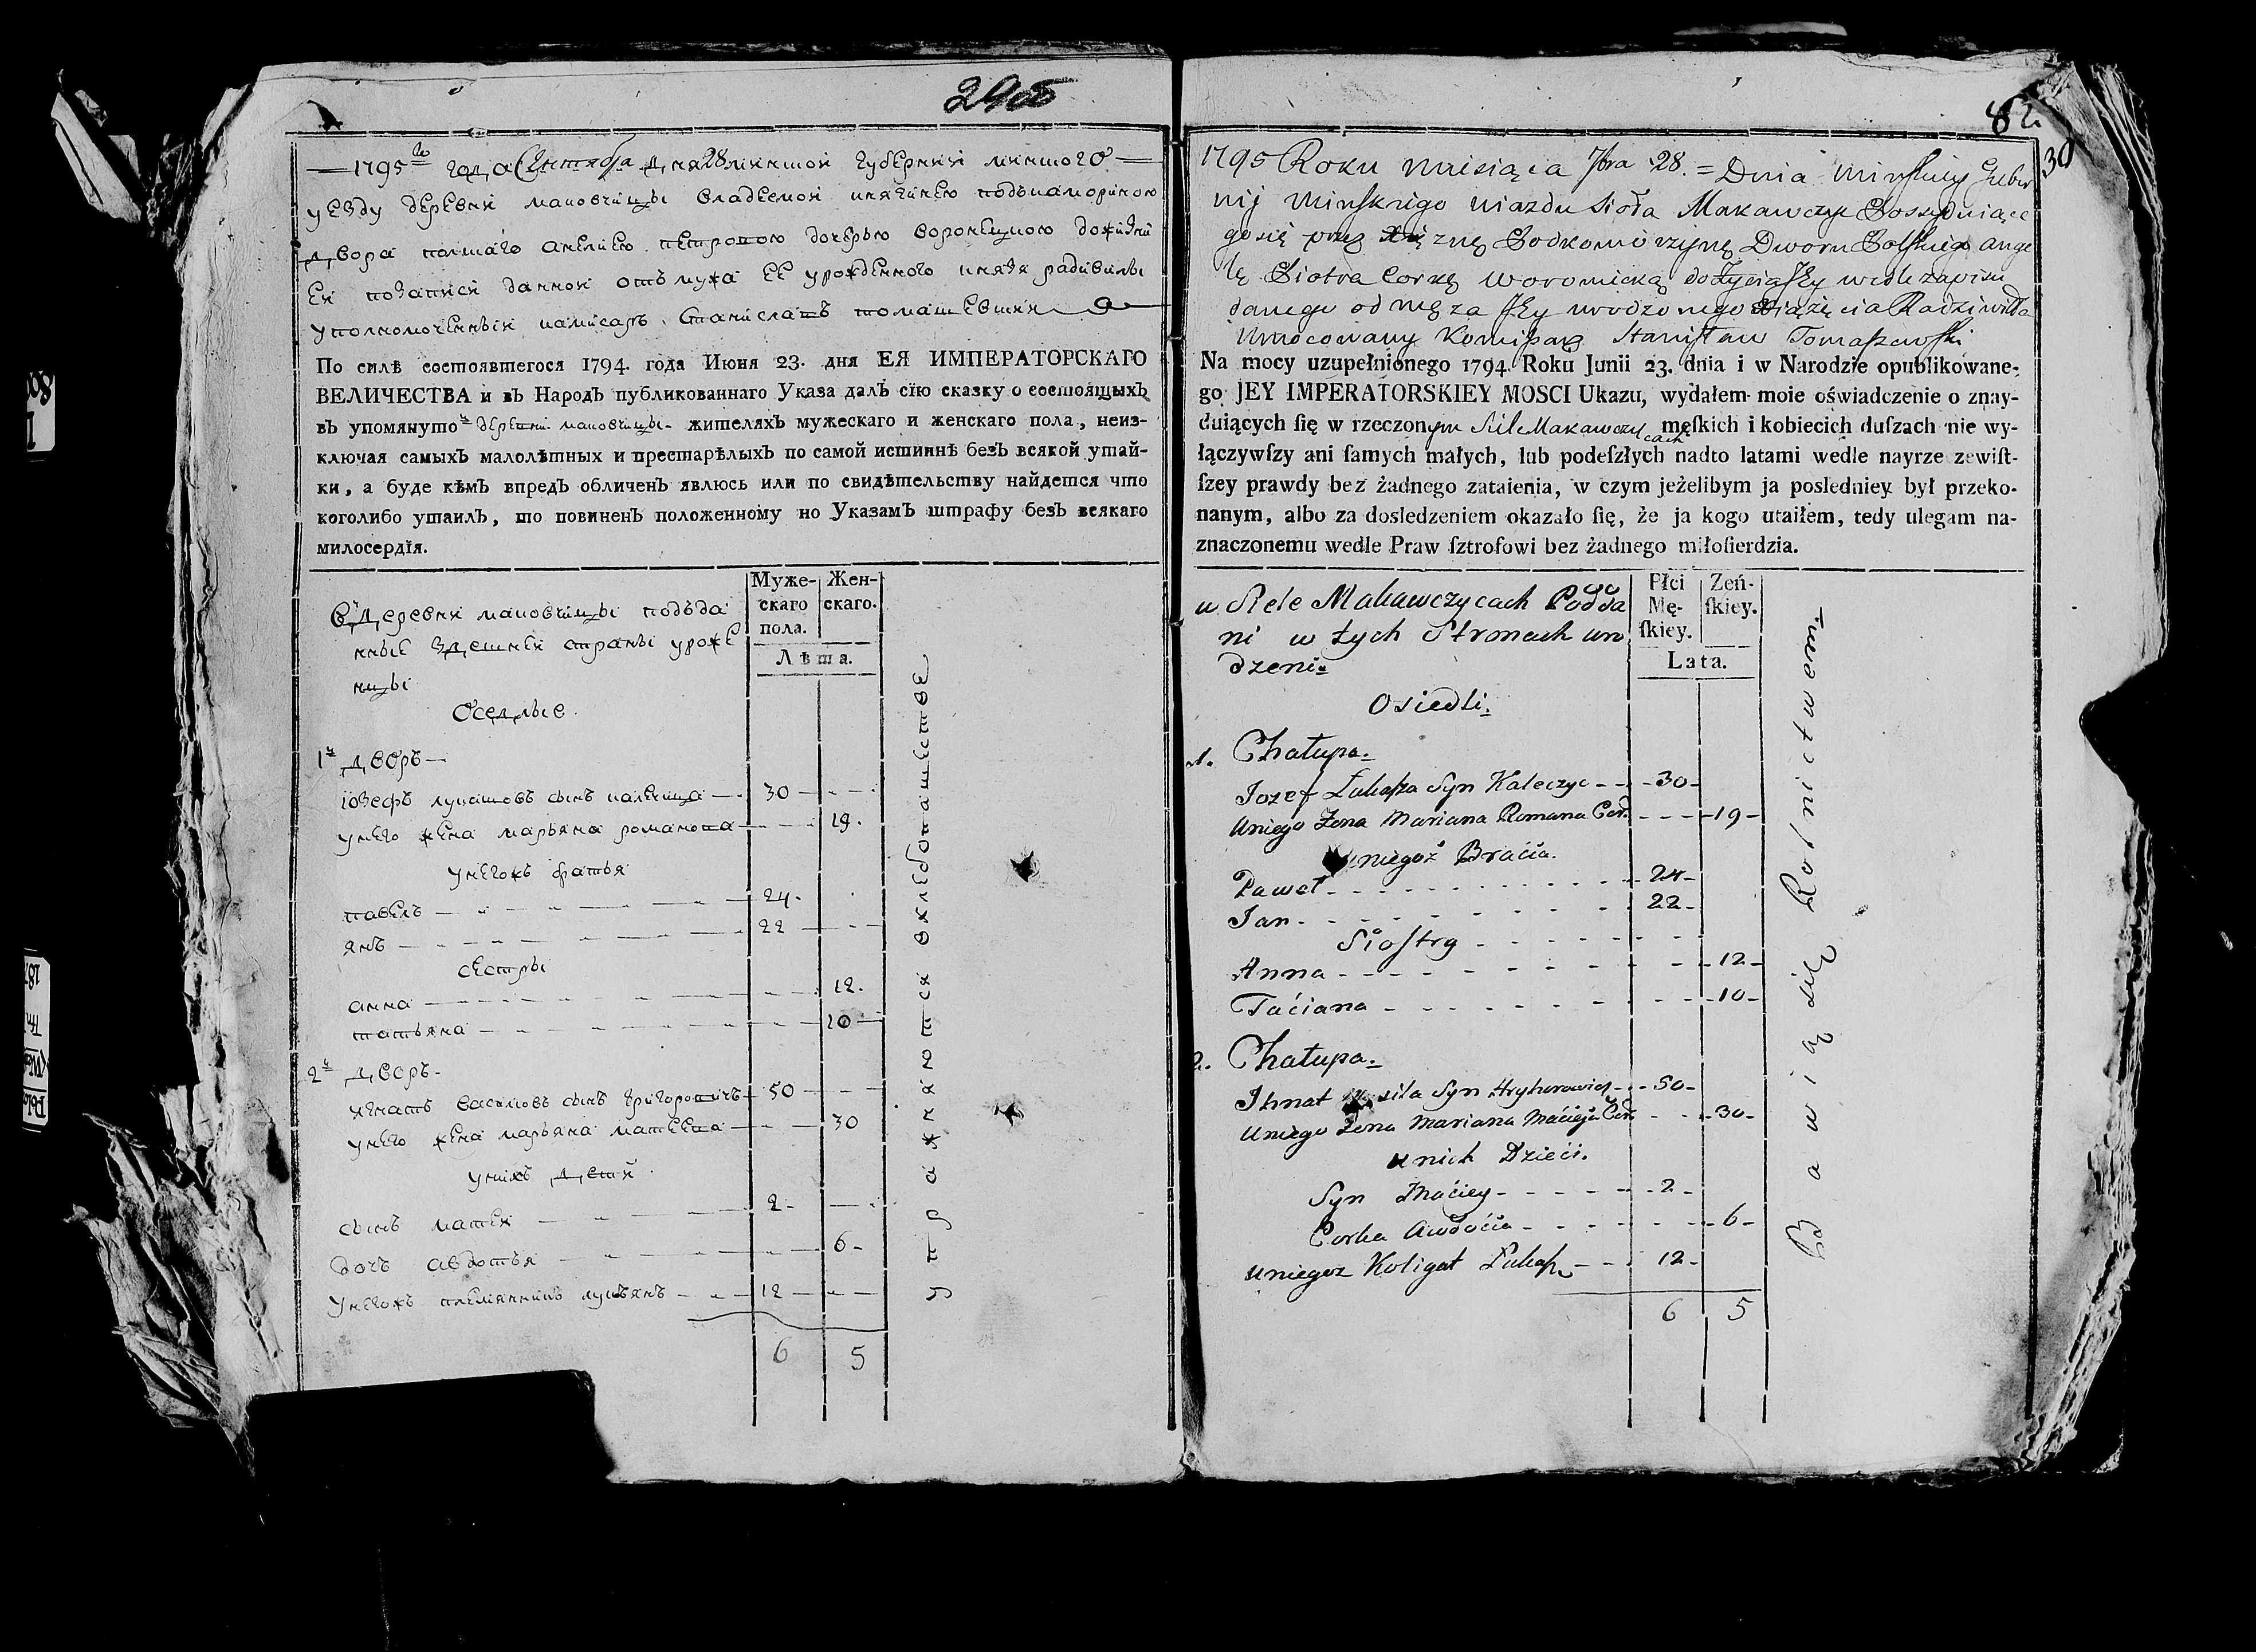 295
1795го года Сентября дня 28 минской губернии минского
уезду деревни маковчицы владеемой княгинею подкаморіною
двора полшаго анелиею петровою дочерью воронецкою дожизни
ей по записи данной отъ мужа ее урожденного князя радивилы
уполномоченный камисаръ Станиславъ томашевский
По силѣ состоявшегося 1794. года Июня 23. дня ЕЯ ИМПЕРАТОРСКАГО
ВЕЛИЧЕСТВА и въ Народъ публикованнаго Указа далъ сїю сказку о состоящыхъ
въ упомянутой деревни маковчицы жителяхъ мужескаго и женскаго пола, неиз-
ключая самыхъ малолѣтныхъ и престарѣлыхъ по самой истиннѣ безъ всякой утай-
ки, а буде кѣмъ впредъ обличенъ явлюсь или по свидѣтельству найдется что
коголибо утаилъ, то повиненъ положенному по Указамъ штрафу безъ всякаго
милосердїя.
Муже- Жен-
скаго скаго.
пола.
Лѣта.
въ деревни маковчицы подъда
нные здешней страны уроже
нцы
Оседлые
1й дворъ
юзефъ лукашовъ сынъ калечица 30
у него жена марьяна романова 19
у негожъ братья
павелъ 24
янъ 22
сестры
анна 12
татьяна 10
2й дворъ
игнатъ васильовъ сынъ григоровичъ 50
у него жена марьяна матеева 30
у нихъ дети
сынъ матей 2
дочь авдотья 6
у негожъ племянникъ лукьянъ 12
6 5
упражняются вхлебопашестве
82
30
1795 Roku miesiąca 7bra 28. = Dnia Minskiey Guber
nij Minskiego uiazdu Sioła Makawczyc Possyduiące
gosię przez Xiężnę Podkomorzynę Dworu Polskiego Ange
lę Piotra Corkę Woronicką do życia Jey wedle zapisu
danego od męża Jey urodzonego Xiążęcia Radziwiłła
Umocowany Komisarz Stanisław Tomaszewski
Na mocy uzupełnionego 1794. Roku Junii 23. dnia i w Narodzie opublikowane-
go JEY IMPERATORSKIEY MOSCI Ukazu, wydałem moie oświadczenie o znay-
duiących ſię w rzeczonym Siele Makawczycach męſkich i kobiecich duſzach nie wy-
łączywſzy ani ſamych małych, lub podeſzłych nadto latami wedle nayrze zewiſt-
ſzey prawdy bez żadnego zataienia, w czym jeżelibym ja posledniey był przeko-
nanym, albo za dosledzeniem okazało ſię, że ja kogo utaiłem, tedy ulegam na-
znaczonemu wedle Praw ſztrofowi bez żadnego miłoſierdzia.
Płci Żeń-
Mę- ſkiey.
ſkiey.
Lata.
w Siele Makawczycach Podda
ni w tych Stronach uro
dzeni
Osiedli.
1. Chałupa.
Jozef Łukaſza Syn Kaleczyc 30
u niego Żona Mariana Romana Cor. 19
u niegoż Bracia.
Paweł 24
Jan 22
Sioſtry
Anna 12
Taciana 10
2. Chałupa.
Ihnat Wasila Syn Hryhorowicz 50
u niego Żona Mariana Macieja Cor. 30
u nich Dzieci.
Syn Maciey 2
Corka Awdocia 6
u niegoz Koligat Łukaſz 12
6 5
Bawią się Rolnictwem